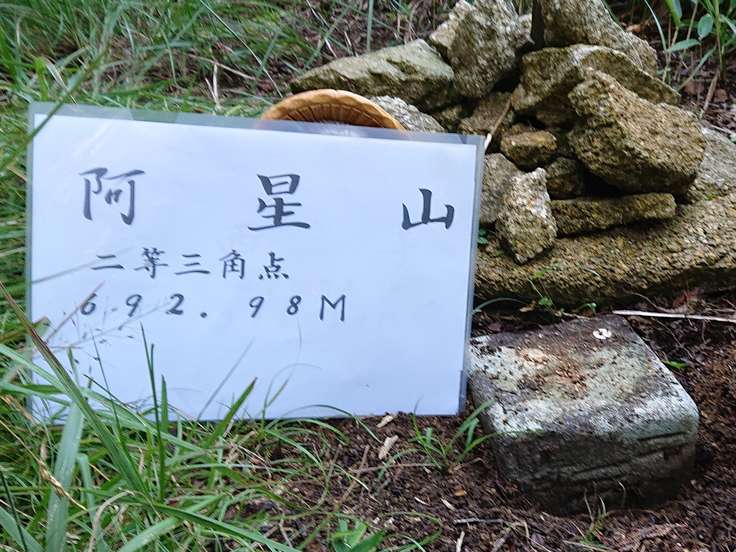 阿星山
二等三角点
692.98M